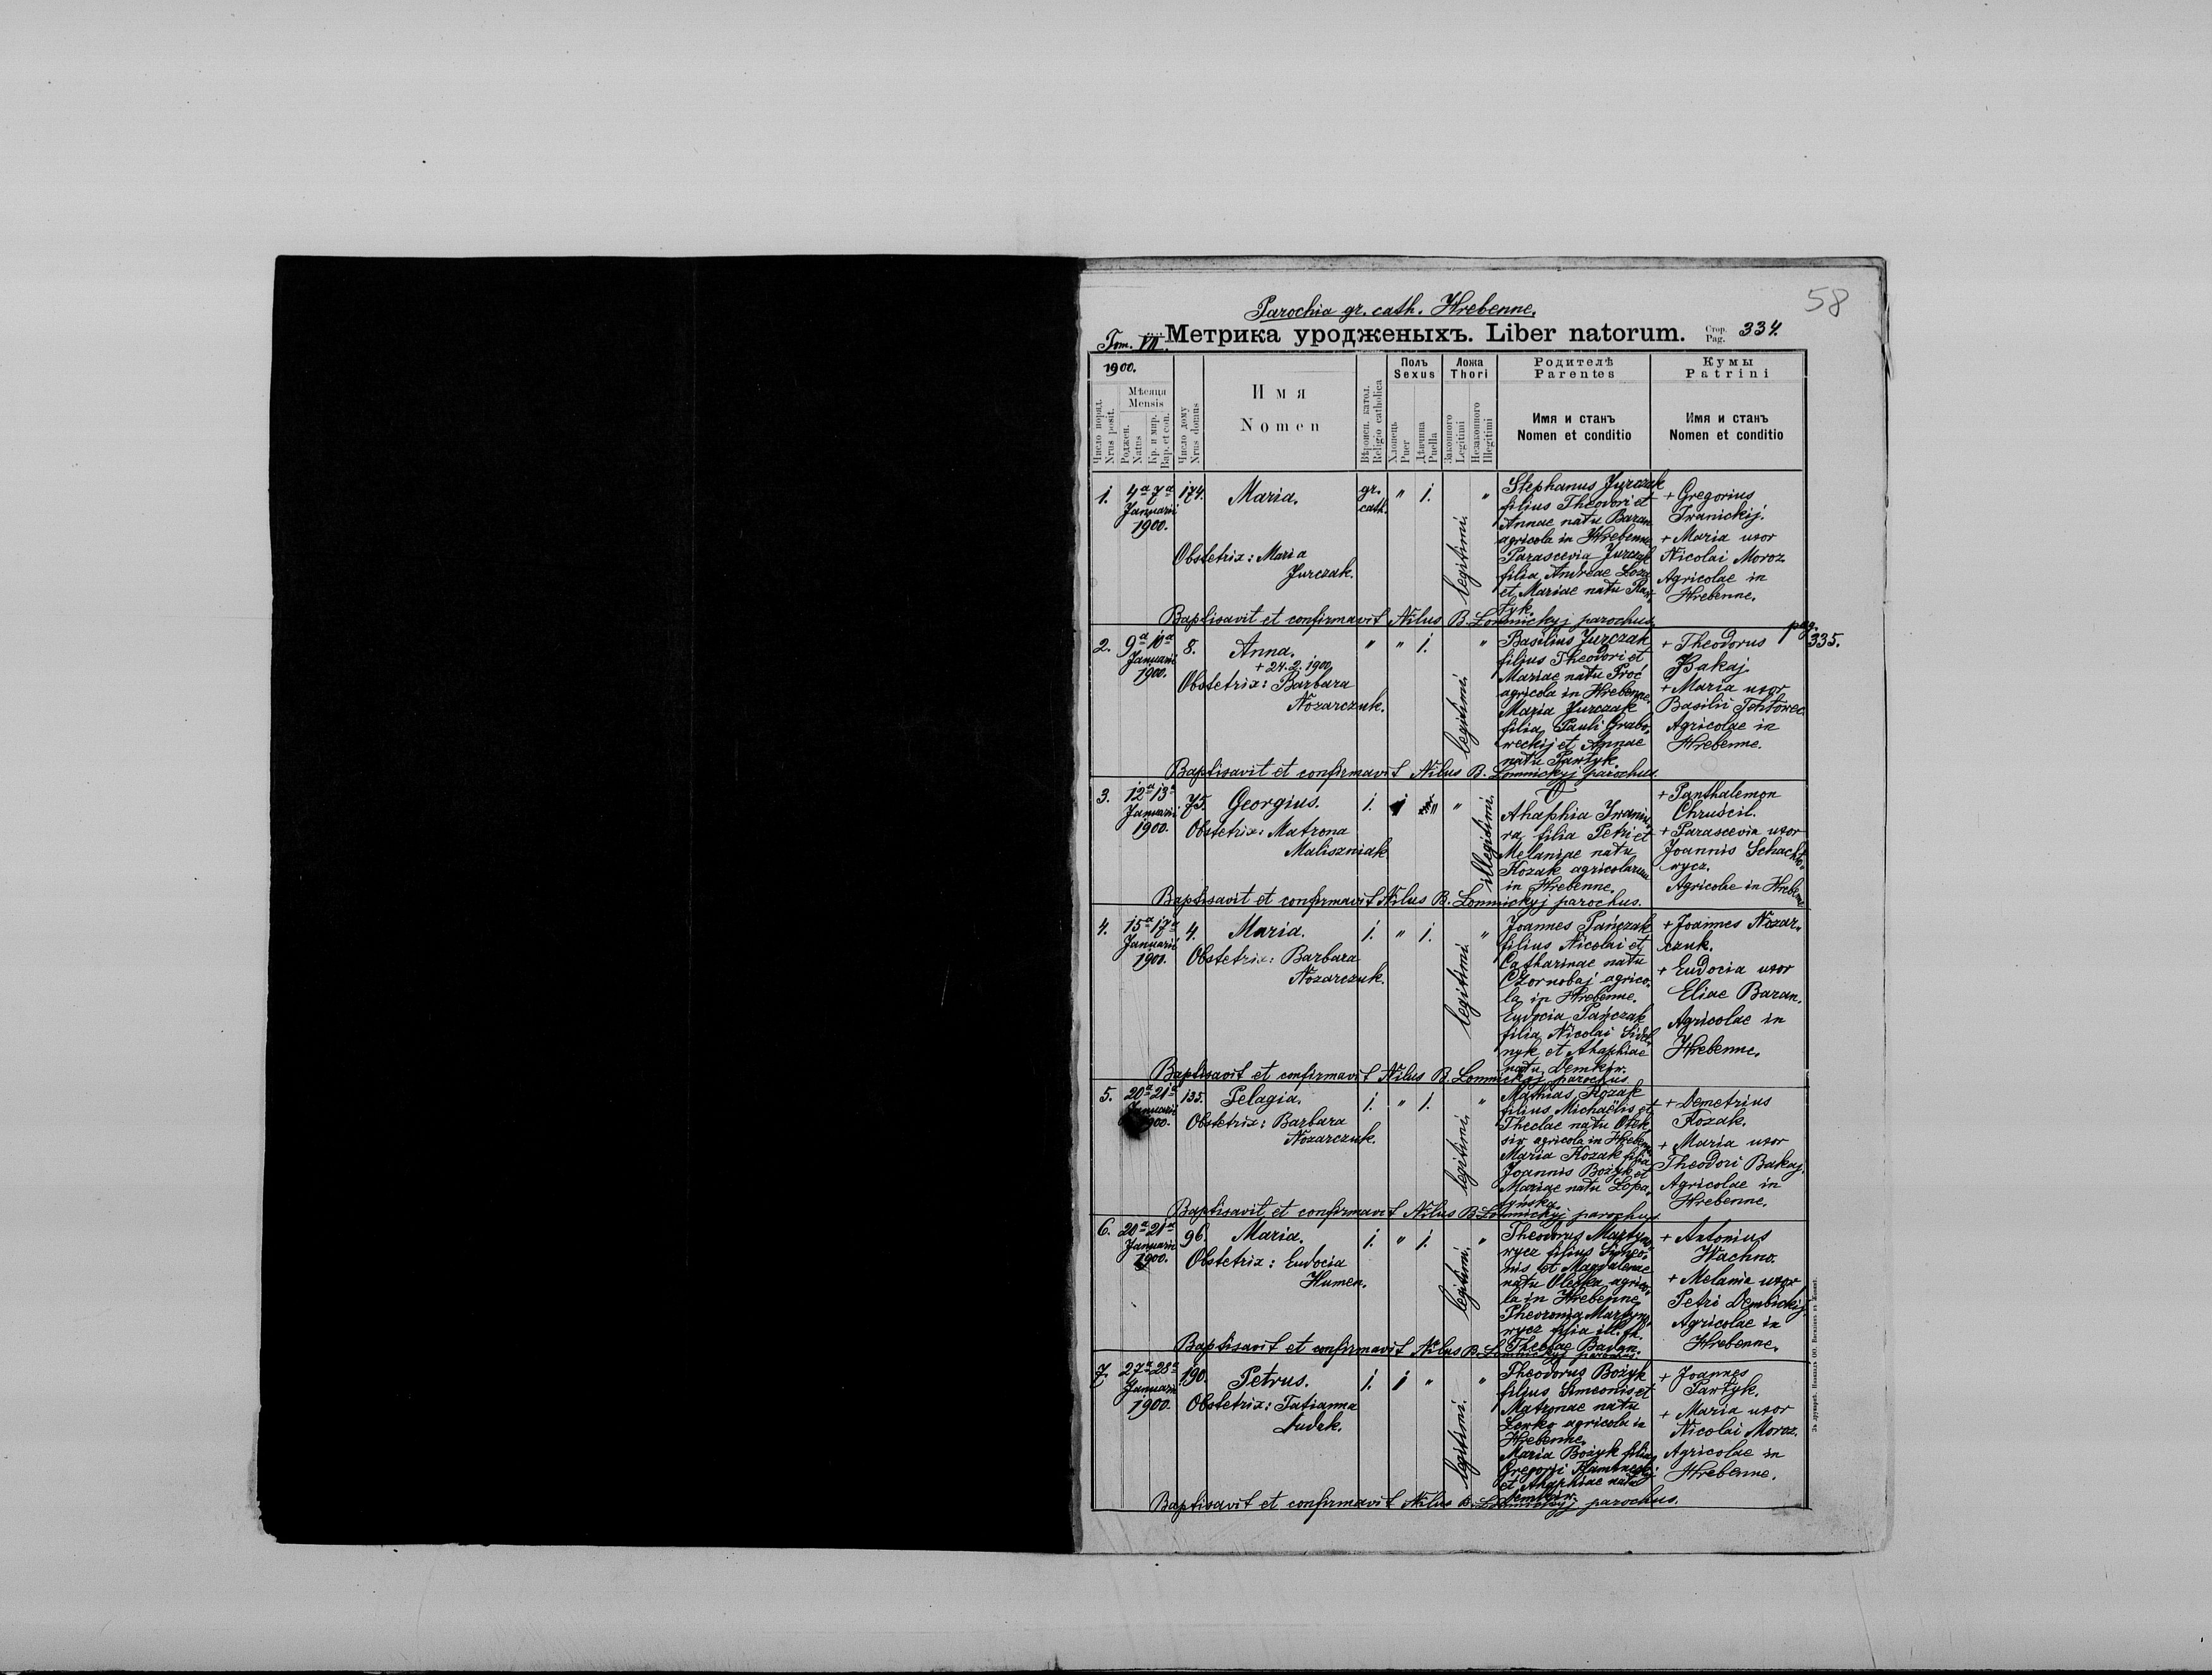 58
Parochia gr. cath. Hrebenne.
Tom. VII. Метрика уродженыхъ. Liber natorum. Стор. Pag. 334.
1900.
Число поряд. Nrus posit.
Мѣсяца Mensis
Роджен. Natus
Кр. и мир. Bap. et con.
Число дому Nrus domus
Имя
Nomen
Вѣроисп. катол. Religio catholica
Полъ Sexus
Хлопець Puer
Дѣвчина Puella
Ложа Thori
Законного Legitimi
Незаконного Illegitimi
Родителѣ
Parentes
Имя и станъ
Nomen et conditio
Кумы
Patrini
Имя и станъ
Nomen et conditio
1. 4a 7a Januarii 1900. 174. Maria. gr. cath. " 1. legitimi. "
Obstetrix: Maria
Jurczak.
Stephanus Jurczak
filius Theodori et
Annae natu Baran
agricola in Hrebenne.
Parascevia Jurczak
filia Andreae Loza
et Mariae natu Par-
tyk.
+ Gregorius
Iwanickij.
+ Maria uxor
Nicolai Moroz
Agricolae in
Hrebenne.
Baptisavit et confirmavit Nilus B. Lomnickyj parochus.
pag. 335.
2. 9a 10a Januarii 1900. 8. Anna. " " 1. legitimi. "
+ 24.2.1900
Obstetrix: Barbara
Nozarczuk.
Basilius Jurczak
filius Theodori et
Mariae natu Proć
agricola in Hrebenne.
Maria Jurczak
filia Pauli Grabo-
weckij et Annae
natu Partyk.
+ Theodorus
Bakaj.
+ Maria uxor
Basilii
Agricolae in
Hrebenne.
Baptisavit et confirmavit Nilus B. Lomnickyj parochus.
3. 12a 13a Januarii 1900. 75. Georgius. 1. 1 " " illegitimi.
Obstetrix: Matrona
Maliszniak
Ahaphia
filia Petri et
Melaniae natu
Kozak agricolarum
in Hrebenne.
+ Panthalemon
Chruścil.
+ Parascevia uxor
Joannis Schacho-
wycz.
Agricolae in Hrebenne
Baptisavit et confirmavit Nilus B. Lomnickyj parochus.
4. 15a 17a Januarii 1900. 4. Maria. 1. " 1. legitimi. "
Obstetrix: Barbara
Nozarczuk.
Joannes Pańczak
filius Nicolai et
Catharinae natu
Czornobaj agrico-
la in Hrebenne.
Eudocia Pańczak
filia Nicolai Sidel-
nyk et Ahaphiae
natu Demków.
+ Joannes Nozar-
czuk.
+ Eudocia uxor
Eliae Baran.
Agricolae in
Hrebenne.
Baptisavit et confirmavit Nilus B. Lomnickyj parochus
5. 20a 21a Januarii 1900. 135. Pelagia. 1. " 1. legitimi. "
Obstetrix: Barbara
Nozarczuk.
Mathias Kozak
filius Michaëlis et
Theclae natu
agricola in Hrebenne
Maria Kozak filia
Joannis Bożyk et
Mariae natu Łopa-
tyńska.
+ + Demetrius
Kozak.
+ Maria uxor
Theodori Bakaj.
Agricolae in
Hrebenne.
Baptisavit et confirmavit Nilus B. Lomnickyj parochus.
6. 20a 21a Januarii 1900. 96. Maria. 1. " 1. legitimi. "
Obstetrix: Eudocia
Humen.
Theodorus Martyno-
wycz filius Simeo-
nis et Magdalenae
natu agrico-
la in Hrebenne.
Martyno-
wycz filia ill. th.
Theclae
+ Antonius
Wachno.
+ Melania uxor
Petri Dembickij
Agricolae in
Hrebenne.
Baptisavit et confirmavit Nilus B. Lomnickyj parochus.
7. 27a 28a Januarii 1900. 190. Petrus. 1. 1 " legitimi. "
Obstetrix: Tatianna
Dudek.
Theodorus Bożyk
filius Simeonis et
Matronae natu
agricola in
Hrebenne.
Maria Bożyk filia
Gregorii
et Ahaphiae natu
Demków.
+ Joannes
Partyk.
+ Maria uxor
Nicolai Moroz.
Agricolae in
Hrebenne.
Baptisavit et confirmavit Nilus B. Lomnickyj parochus.